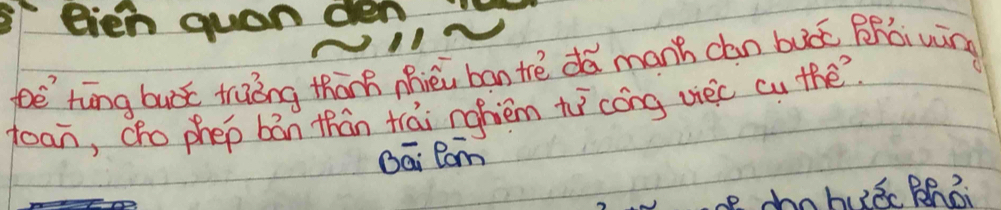 liên quan đến
Để từng bước trưởng thành nhiều bạn trẻ đã mạnh dạn bước khỏi vùng
toàn, cho phép bản thân trải nghiệm từ công việc cụ thể.
Bài làm
dạn bước khỏi